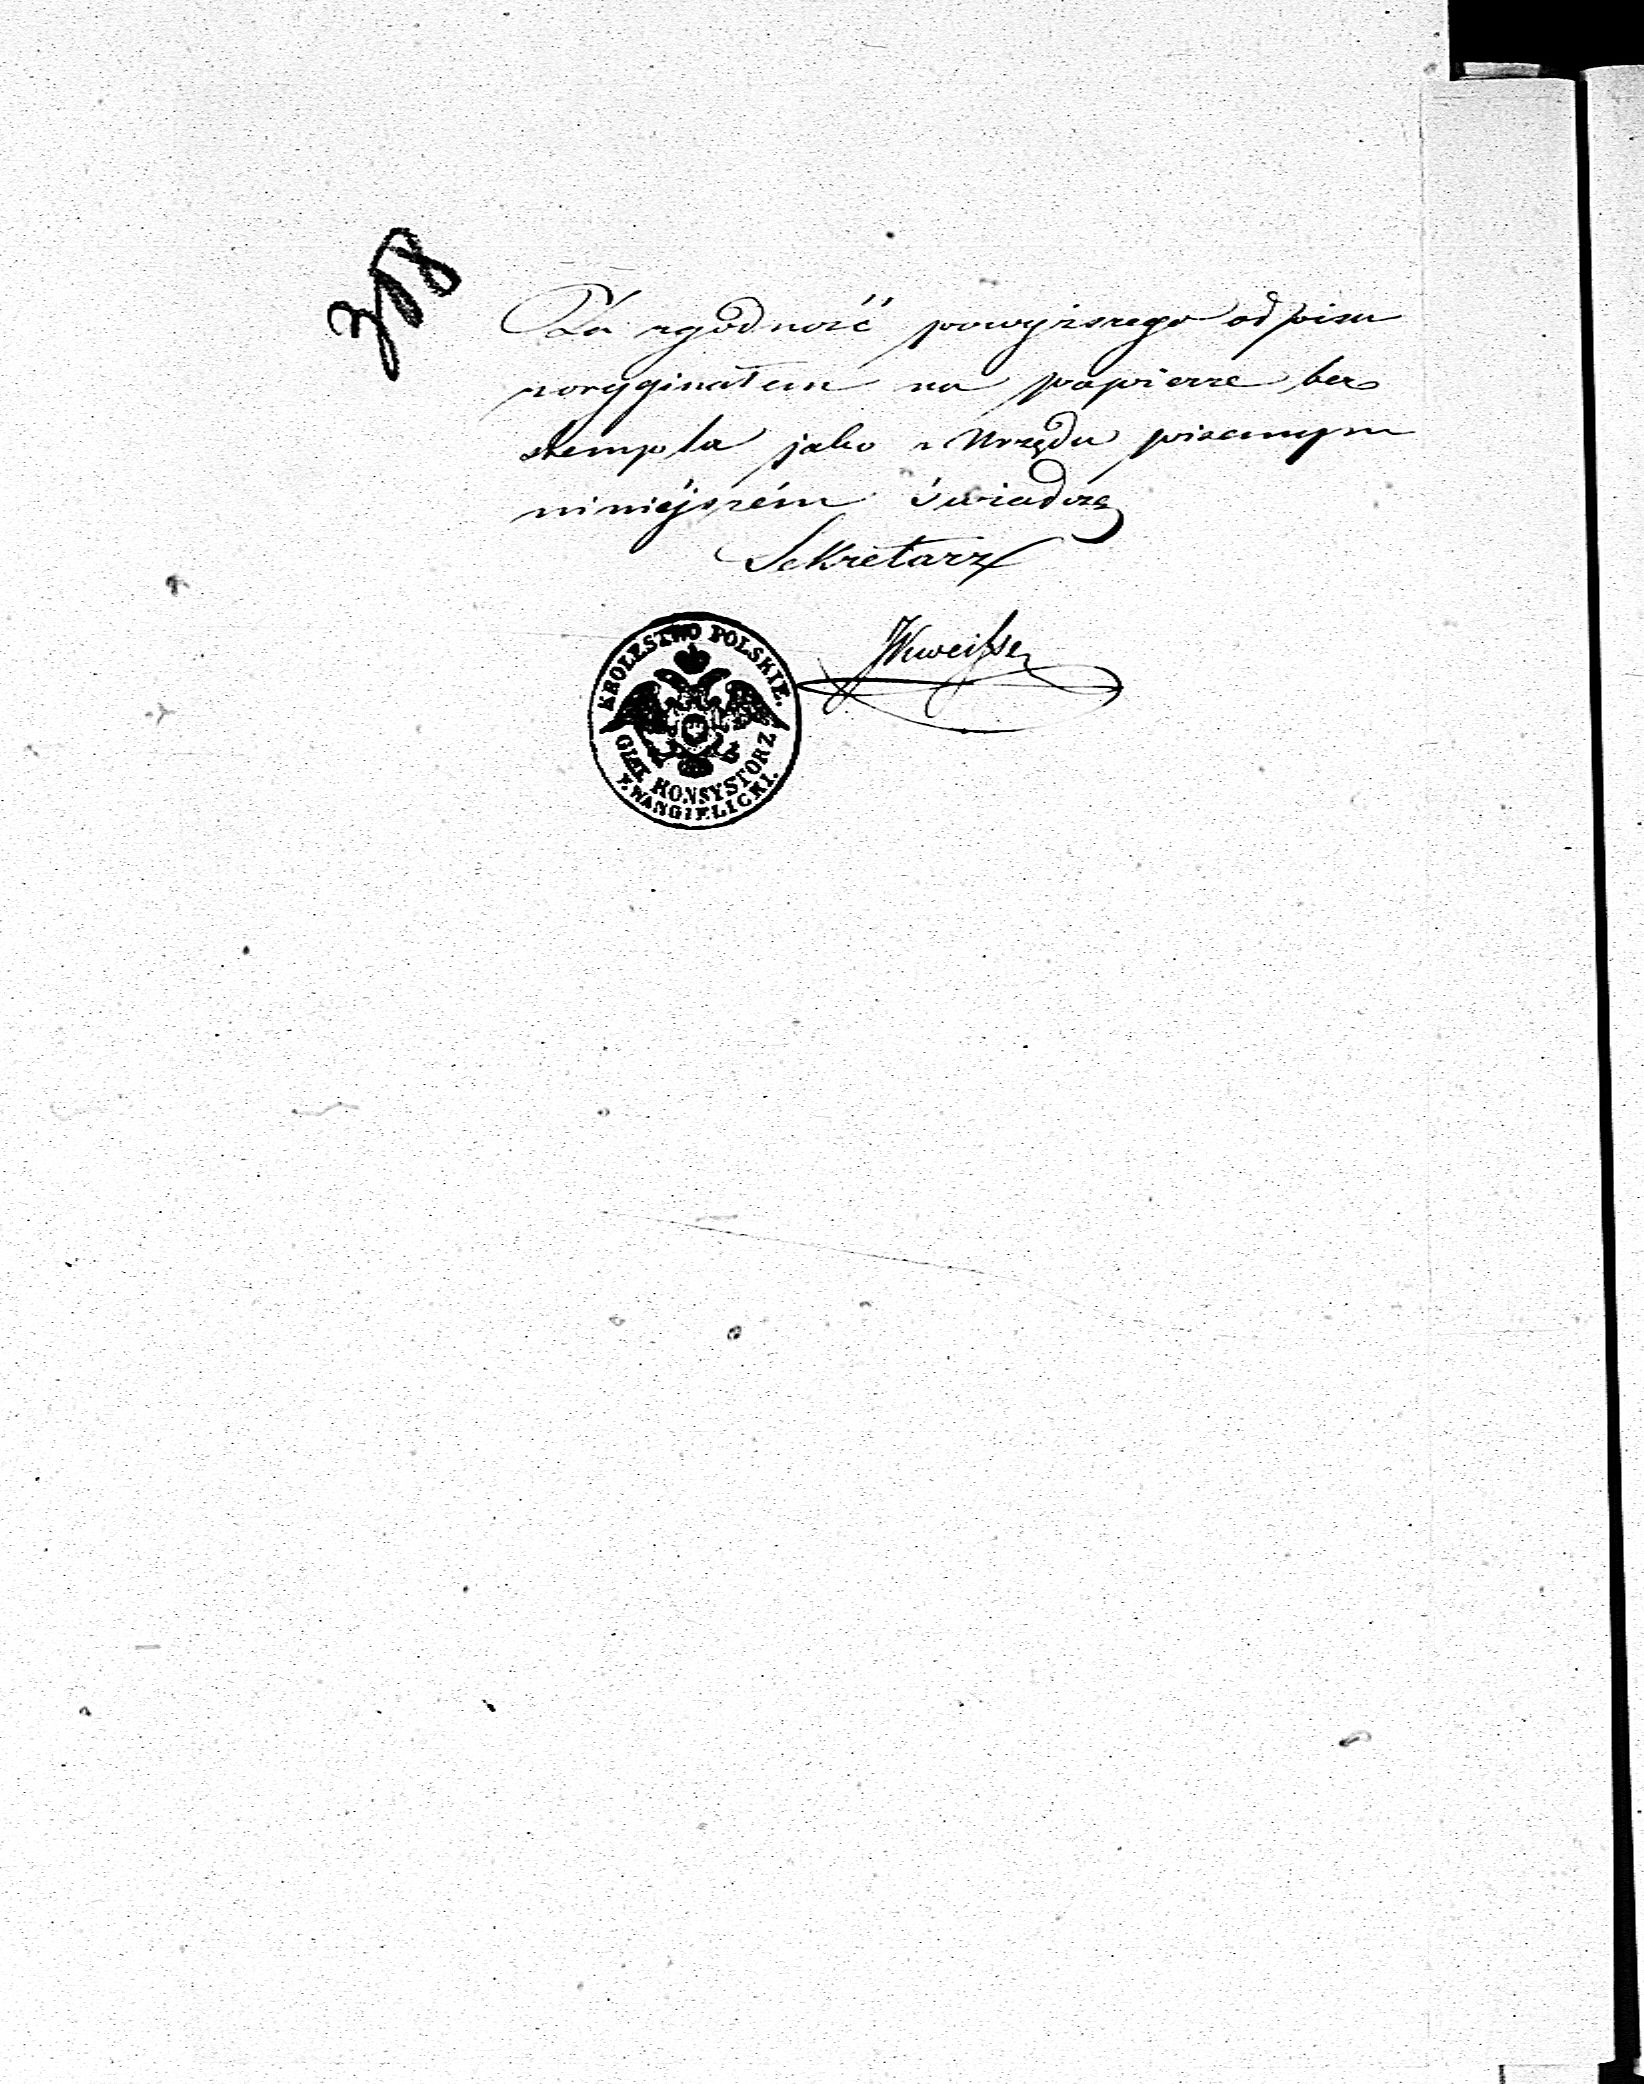 358
Za zgodność powyższego odpisu
z oryginałem na papierze bez
stempla jako z Urzędu pisanym
niniéjszém świadczę
Sekretarz
KROLESTWO POLSKIE.
GŁÓ. KONSYSTORZ
EWANGIELICKI.